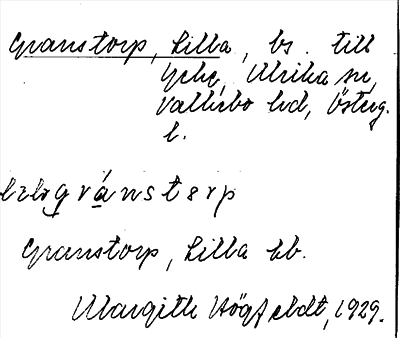 Granstorp, Lilla, bs. till
Yche, Ulrika sn,
Vallerbo hd, Österg.
l.
gránstərp
Granstorp, Lilla kb.
Margith Högfeldt, 1929.